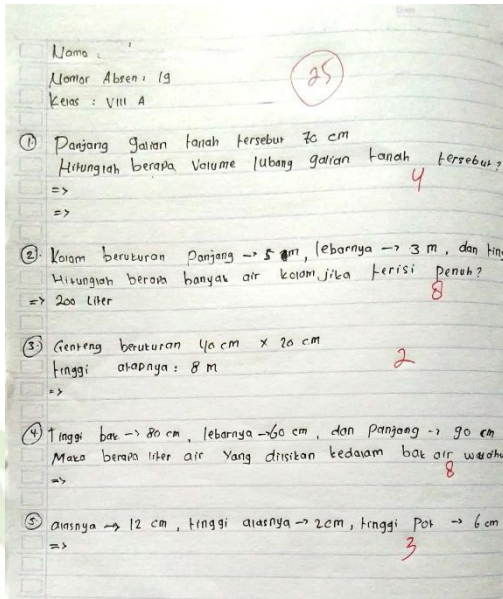 Nama :
Nomor Absen : 19
Kelas : VIII A
25
1. Panjang galian tanah tersebut 70 cm
Hitunglah berapa Volume lubang galian tanah tersebut?
4
=>
=>
2. Kolam berukuran Panjang -> 5 m, lebarnya -> 3 m, dan ting
Hitunglah berapa banyak air kolam jika terisi penuh?
8
=> 200 Liter
3. Genteng berukuran 40 cm x 20 cm
2
tinggi atapnya : 8 m
=>
4. Tinggi bak -> 80 cm, lebarnya -> 60 cm, dan Panjang -> 90 cm
Maka berapa liter air Yang diisikan kedalam bak air wudhu
8
=>
5. alasnya -> 12 cm, tinggi alasnya -> 2cm, tinggi Pot -> 6 cm
=>
3